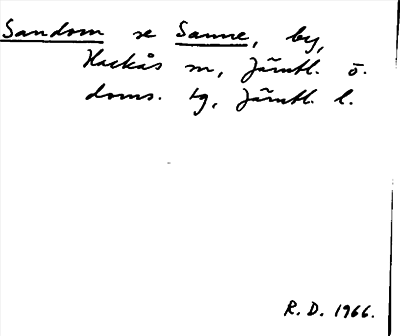 Sandom se Sanne, by,
Hackås sn, Jämtl. ö.
doms. tg, Jämtl. l.
R. D. 1966.